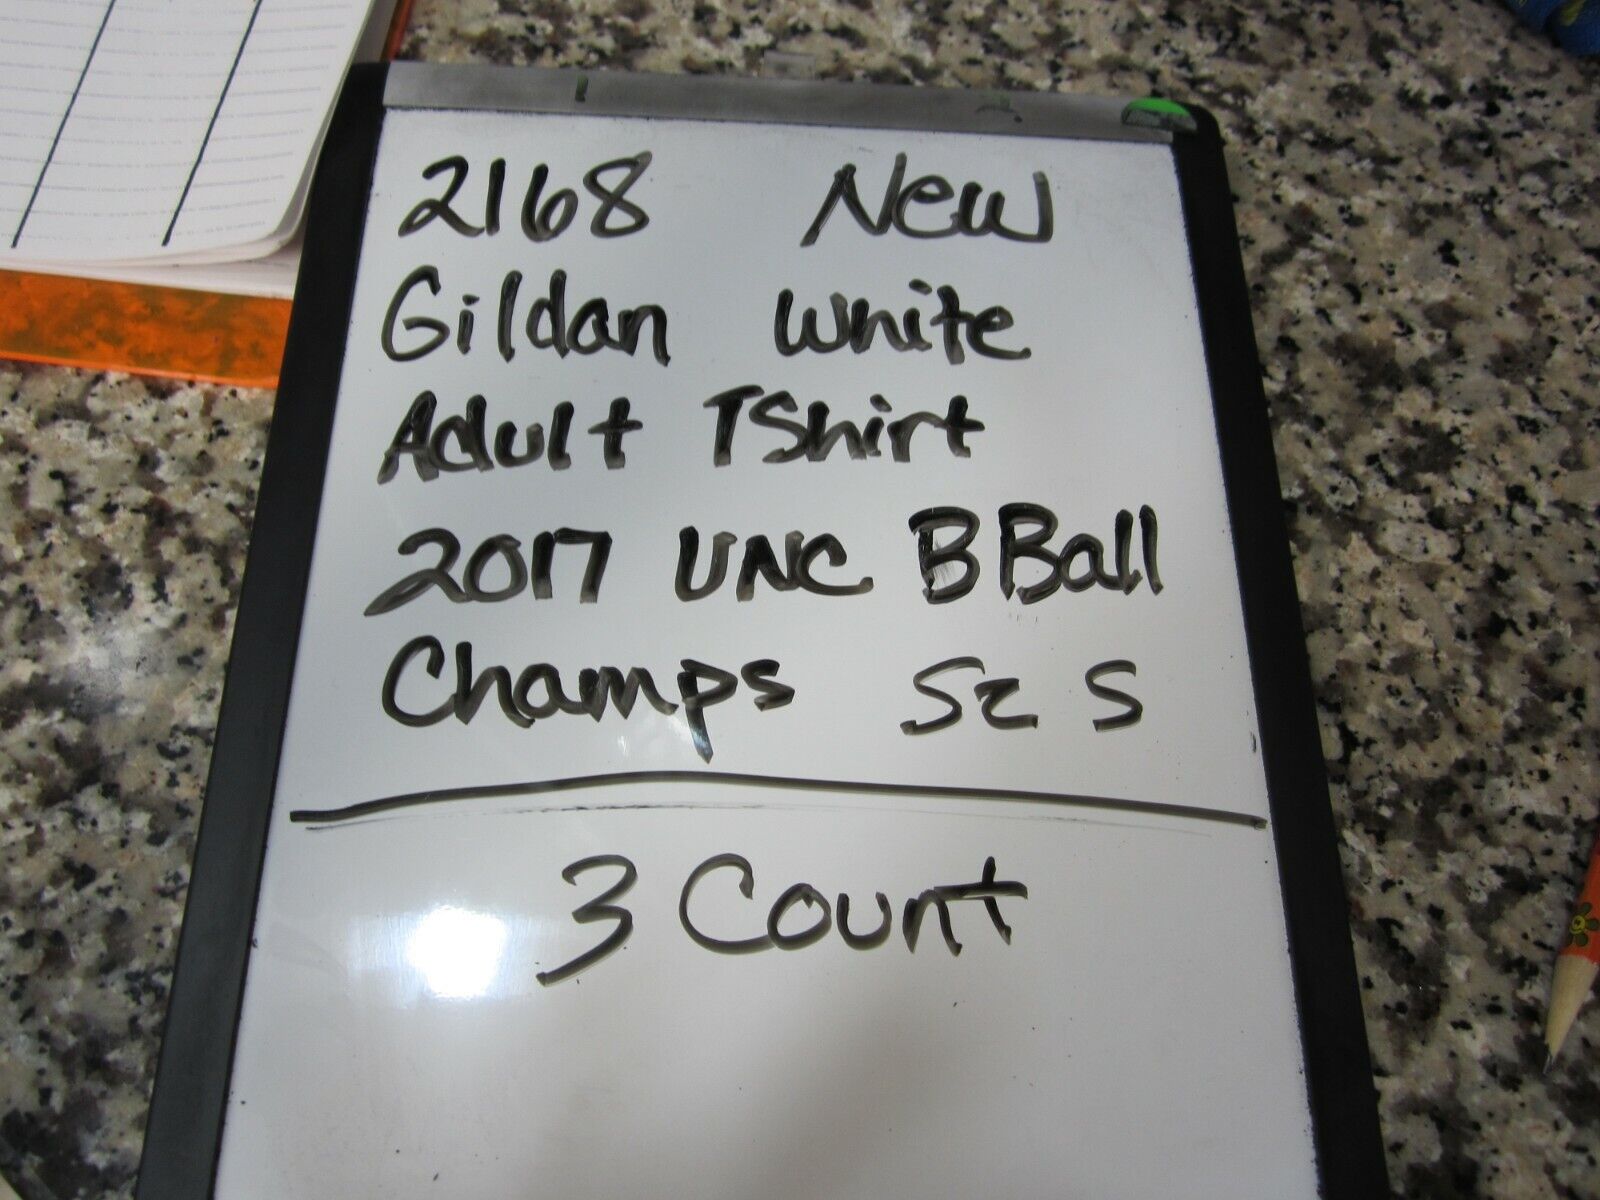 2168 New
Gildan White
Adult TShirt
2017 UNC BBall
Champs Sz S
3 Count